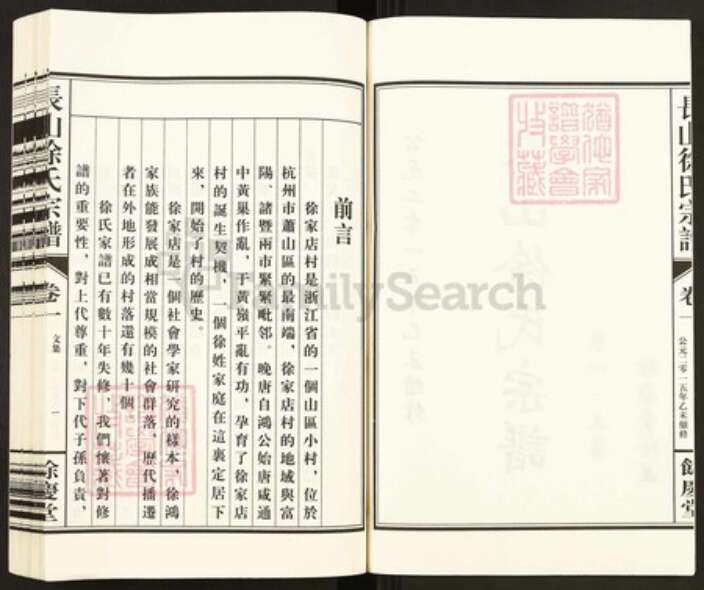 長山徐氏宗譜
卷一
公元二零一五年乙未續修
餘慶堂
猶他家
譜學會
收藏
FamilySearch
前言
徐家店村是浙江省的一個山區小村，位於
杭州市蕭山區的最南端，徐家店村的地域與富
陽、諸暨兩市緊緊毗邻。晚唐自鴻公始唐咸通
中黃巢作亂，于黃嶺平亂有功，孕育了徐家店
村的誕生契機，一個徐姓家庭在這裏定居下
來，開始了村的歷史。
徐家店是一個社會學家研究的樣本，徐鴻
家族能發展成相當規模的社會群落，歷代播遷
者在外地形成的村落還有幾十個
徐氏家譜已有數十年失修，我們懷著對修
譜的重要性，對上代尊重，對下代子孫負責，
長山徐氏宗譜
卷一
文集
一
餘慶堂